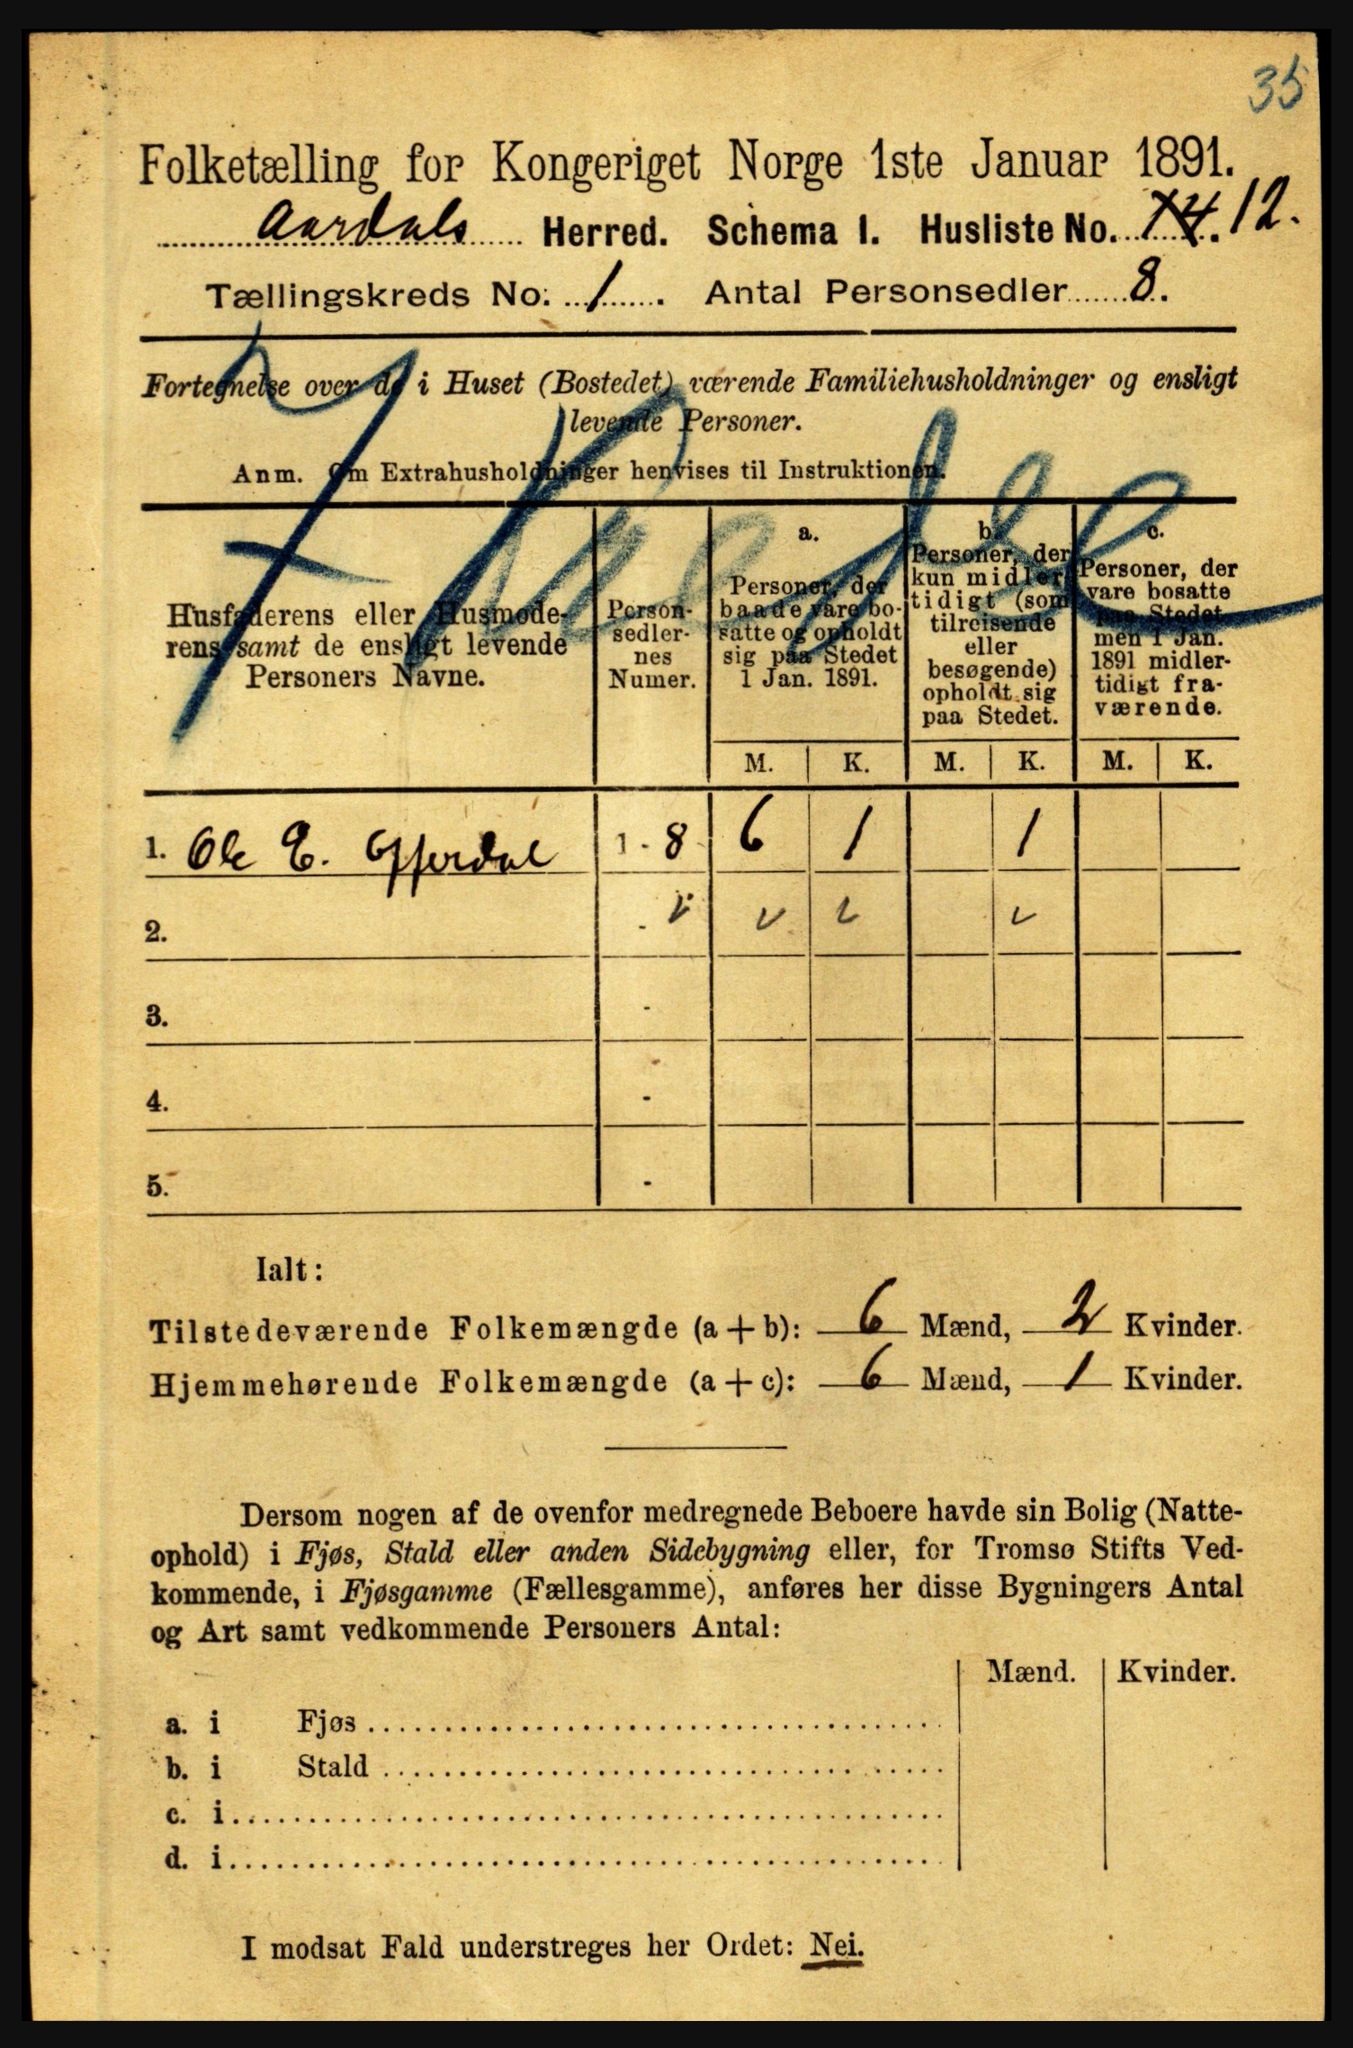 35
Folketælling for Kongeriget Norge 1ste Januar 1891.
Aardals Herred. Schema I. Husliste No. 14. 12.
Tællingskreds No. 1. Antal Personsedler 8.
Fortegnelse over de i Huset (Bostedet) værende Familiehusholdninger og ensligt
levende Personer.
Anm. Om Extrahusholdninger henvises til Instruktionen.
Husfaderens eller Husmode-
rens samt de ensligt levende
Personers Navne.
Person-
sedler-
nes
Numer.
a.
Personer, der
baade vare bo-
satte og opholdt
sig paa Stedet
1 Jan. 1891.
b.
Personer, der
kun midler-
tidigt (som
tilreisende
eller
besøgende)
opholdt sig
paa Stedet.
c.
Personer, der
vare bosatte
paa Stedet
men 1 Jan.
1891 midler-
tidigt fra-
værende.
M. K. M. K. M. K.
1. Ole E. 1 - 8 6 1 1
2. -
3. -
4. -
5. -
Ialt:
Tilstedeværende Folkemængde (a + b): 6 Mænd, 2 Kvinder.
Hjemmehørende Folkemængde (a + c): 6 Mænd, 1 Kvinder.
Dersom nogen af de ovenfor medregnede Beboere havde sin Bolig (Natte-
ophold) i Fjøs, Stald eller anden Sidebygning eller, for Tromsø Stifts Ved-
kommende, i Fjøsgamme (Fællesgamme), anføres her disse Bygningers Antal
og Art samt vedkommende Personers Antal:
Mænd. Kvinder.
a. i Fjøs
b. i Stald
c. i
d. i
I modsat Fald understreges her Ordet: Nei.